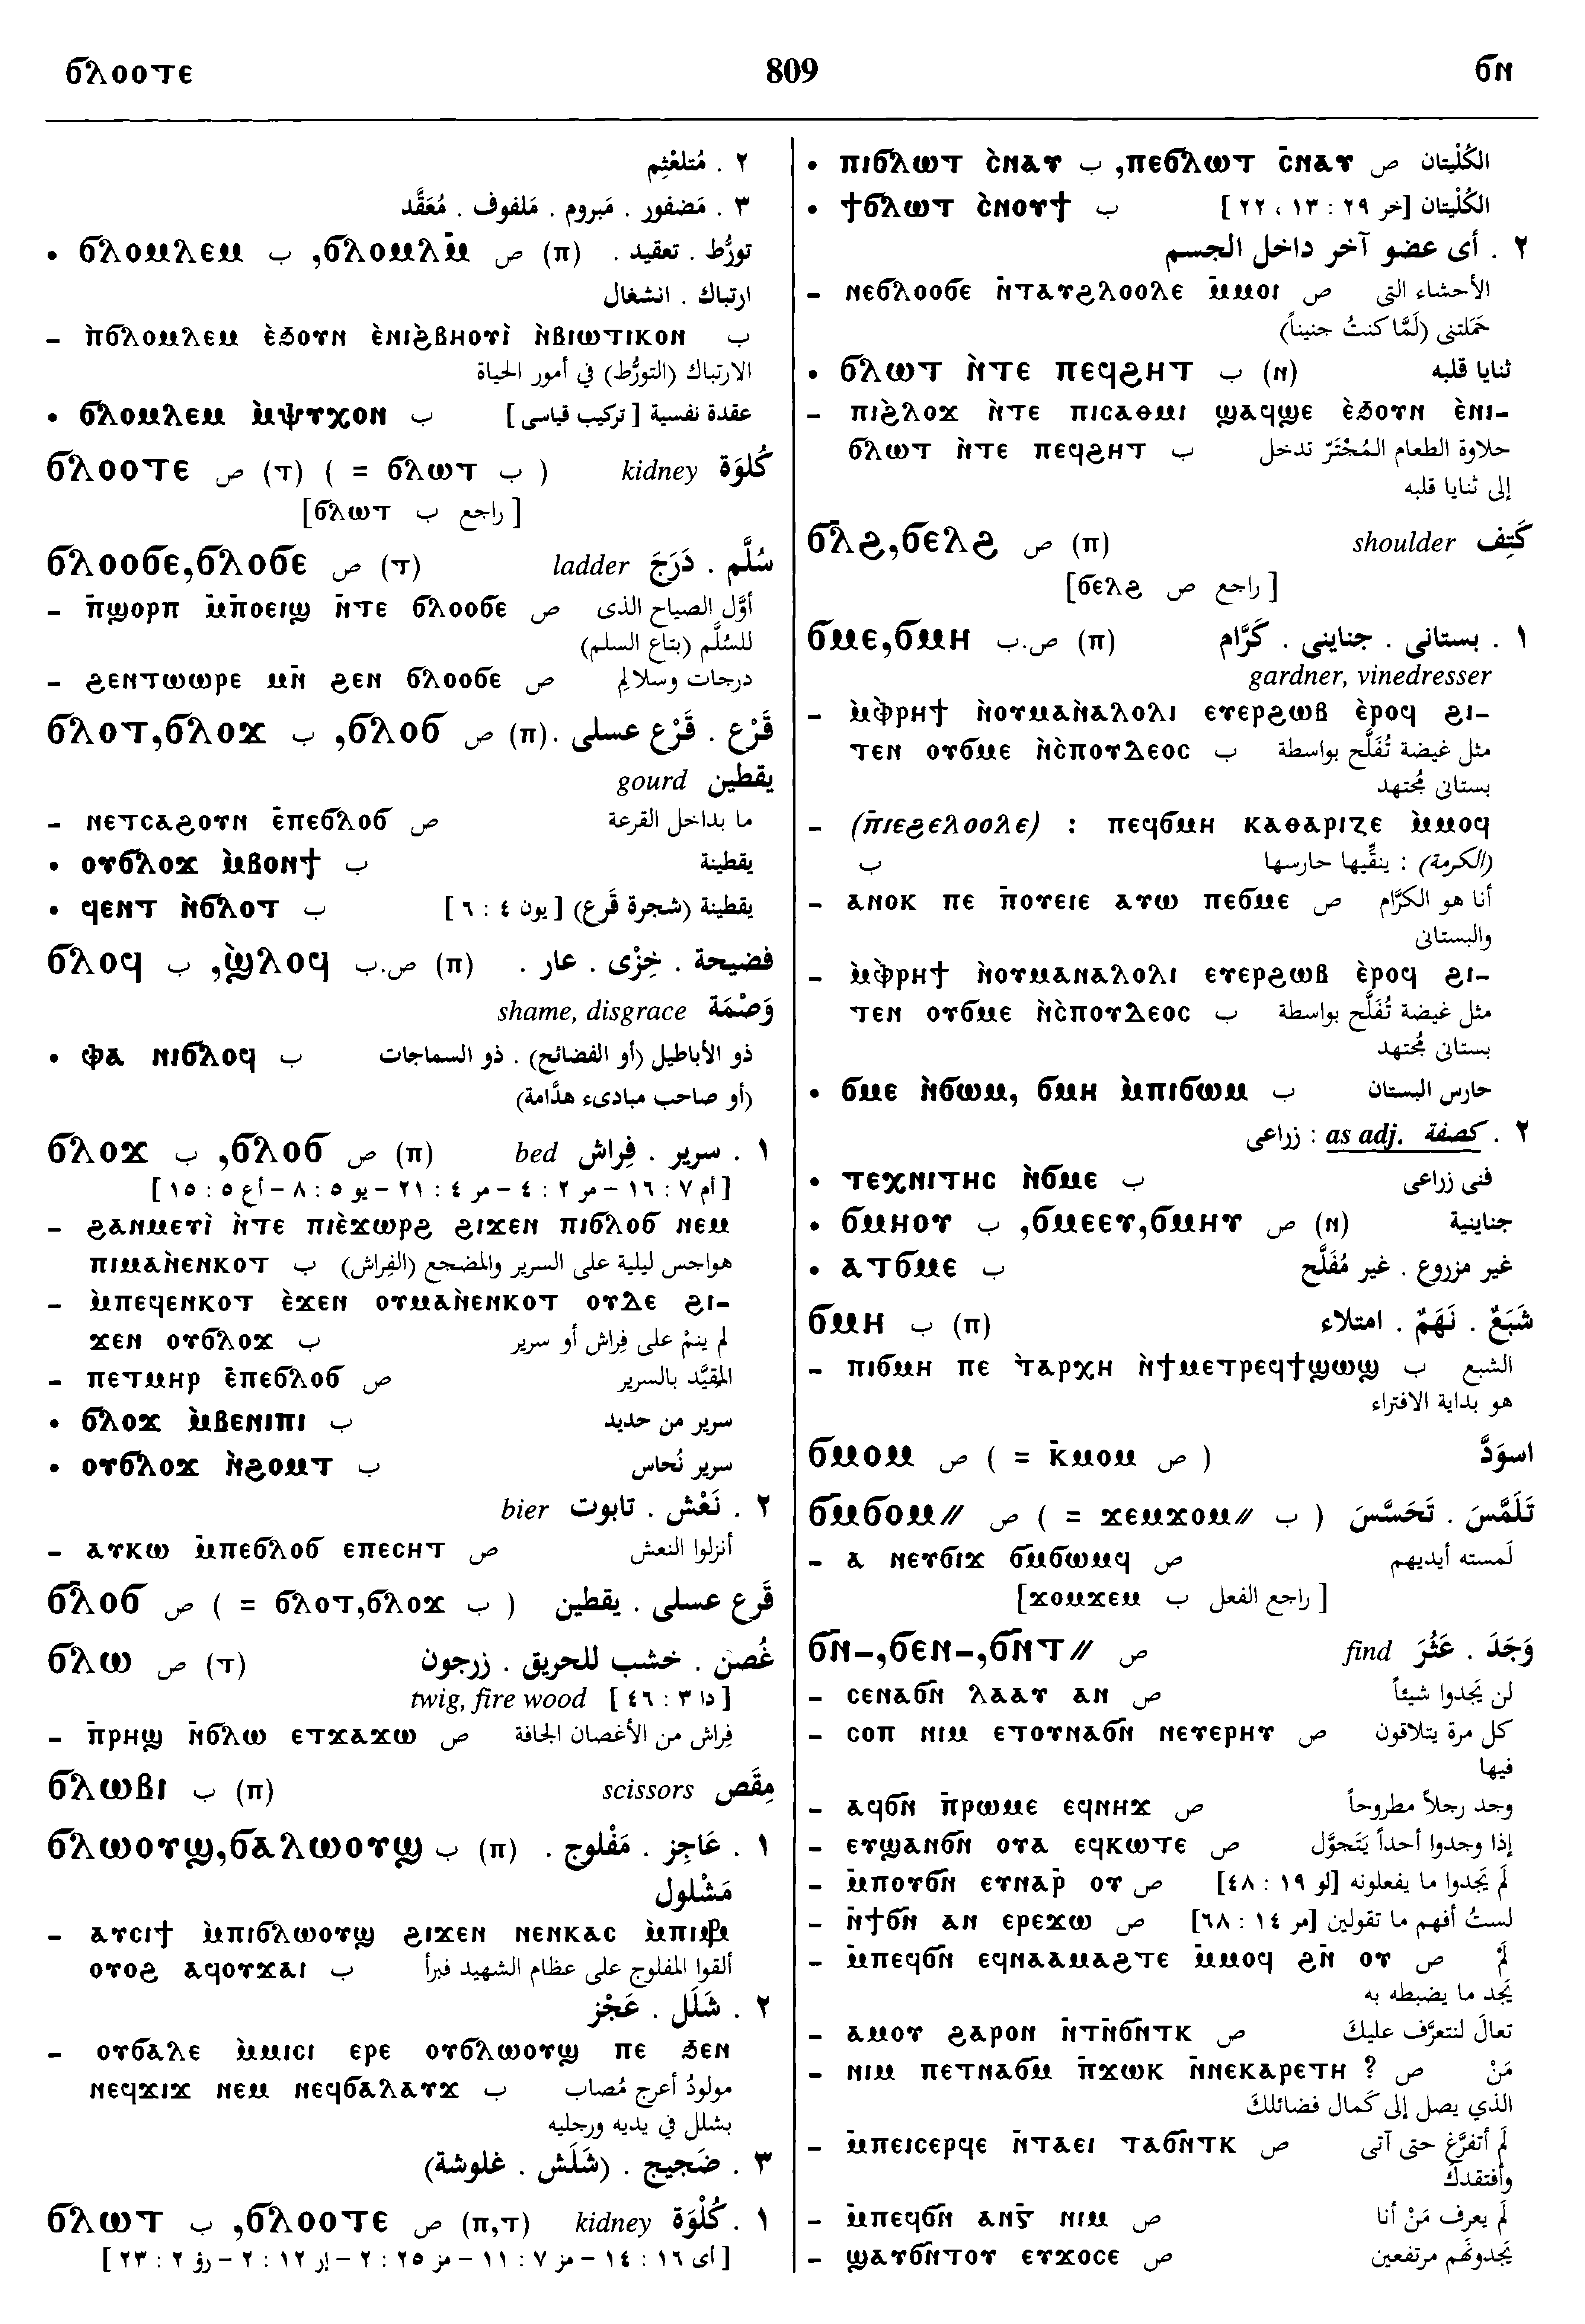 ϭⲗⲟⲟⲧⲉ 809 ϭⲛ
٢ . مُتلعْثِم
٣ . مَضفور . مَبروم . مَلفوف . مُعَقَّد
• ϭⲗⲟⲙⲗⲉⲙ ب ,ϭⲗⲟⲙⲗⲙ̄ ص (ⲡ) تورُّط . تعقيد .
ارتباك . انشغال
– ⲛ̀ϭⲗⲟⲙⲗⲉⲙ ⲉ̀ϧⲟⲩⲛ ⲉ̀ⲛⲓϩ̀ⲃⲏⲟⲩⲓ̀ ⲛ̀ⲃⲓⲱⲧⲓⲕⲟⲛ ب
الارتباك (التورُّط) في أمور الحياة
• ϭⲗⲟⲙⲗⲉⲙ ⲙ̀ⲯⲩⲭⲟⲛ ب عقدة نفسية [ تركيب قياسى ]
ϭⲗⲟⲟⲧⲉ ص (ⲧ) ( = ϭⲗⲱⲧ ب ) kidney كُلوَة
[ϭⲗⲱⲧ راجع ب ]
ϭⲗⲟⲟϭⲉ,ϭⲗⲟϭⲉ ص (ⲧ) ladder سُلَّم . دَرَجَ
– ⲡ̄ϣⲟⲣⲡ ⲙ̄ⲡⲟⲉⲓϣ ⲛ̄ⲧⲉ ϭⲗⲟⲟϭⲉ ص أوَّل الصياح الذى
للسُلَّم (بتاع السلم)
– ϩⲉⲛⲧⲱⲱⲣⲉ ⲙⲛ̄ ϩⲉⲛ ϭⲗⲟⲟϭⲉ ص درجات وسلالِم
ϭⲗⲟⲧ,ϭⲗⲟϫ ب ,ϭⲗⲟϭ ص (ⲡ) قَرْع . قَرْع عسلى .
gourd يقطين
– ⲛⲉⲧⲥⲁϩⲟⲩⲛ ⲉ̄ⲡⲉϭⲗⲟϭ ص ما بداخل القرعة
• ⲟⲩϭⲗⲟϫ ⲙ̀ⲃⲟⲛϯ ب يقطينة
• ϥⲉⲛⲧ ⲛ̀ϭⲗⲟⲧ ب يقطينة (شجرة قَرع) [ يون ٤ : ٦ ]
ϭⲗⲟϥ ب ,ϣ̀ⲗⲟϥ ص.ب (ⲡ) فضيحة . خِزْى . عار .
shame, disgrace وَصْمَة
• ⲫⲁ ⲛⲓϭⲗⲟϥ ب ذو الأباطيل (أو الفضائح) . ذو السماجات
(أو صاحب مبادىء هدَّامة)
ϭⲗⲟϫ ب ,ϭⲗⲟϭ ص (ⲡ) bed ١ . سرير . فِراش
[ أم ٧ : ١٦ – مر ٢ : ٤ – مر ٤ : ٢١ – يو ٥ : ٨ – أع ٥ : ١٥ ]
– ϩⲁⲛⲙⲉⲩⲓ̀ ⲛ̀ⲧⲉ ⲡⲓⲉ̀ϫⲱⲣϩ ϩⲓϫⲉⲛ ⲡⲓϭⲗⲟϭ ⲛⲉⲙ
ⲡⲓⲙⲁⲛ̀ⲉⲛⲕⲟⲧ ب هواجس ليلية على السرير والمضجع (الفِراش)
– ⲙ̀ⲡⲉϥⲉⲛⲕⲟⲧ ⲉ̀ϫⲉⲛ ⲟⲩⲙⲁⲛ̀ⲉⲛⲕⲟⲧ ⲟⲩⲇⲉ ϩⲓ-
ϫⲉⲛ ⲟⲩϭⲗⲟϫ ب لم ينمْ على فِراش أو سرير
– ⲡⲉⲧⲙⲏⲣ ⲉ̄ⲡⲉϭⲗⲟϭ ص المقيَّد بالسرير
• ϭⲗⲟϫ ⲙ̀ⲃⲉⲛⲓⲡⲓ ب سرير من حديد
• ⲟⲩϭⲗⲟϫ ⲛ̀ϩⲟⲙⲧ ب سرير نُحاس
bier ٢ . نَعْش . تابوت
– ⲁⲩⲕⲱ ⲙ̄ⲡⲉϭⲗⲟϭ ⲉⲡⲉⲥⲏⲧ ص أنزلوا النعش
ϭⲗⲟϭ ص ( = ϭⲗⲟⲧ,ϭⲗⲟϫ ب ) قَرع عسلى . يقطين
ϭⲗⲱ ص (ⲧ) غُصن . خشب للحريق . زرجون
twig, fire wood [ دا ٣ : ٤٦ ]
– ⲡ̄ⲣⲏϣ ⲛ̄ϭⲗⲱ ⲉⲧϫⲁϫⲱ ص فِراش من الأغصان الجافة
ϭⲗⲱⲃⲓ ب (ⲡ) scissors مِقَص
ϭⲗⲱⲟⲩϣ,ϭⲁⲗⲱⲟⲩϣ ب (ⲡ) ١ . عَاجِز . مَفْلوج .
مَشْلول
– ⲁⲩⲥⲓϯ ⲙ̀ⲡⲓϭⲗⲱⲟⲩϣ ϩⲓϫⲉⲛ ⲛⲉⲛⲕⲁⲥ
ⲟⲩⲟϩ ⲁϥⲟⲩϫⲁⲓ ب ألقوا المفلوج على عظام الشهيد فبرأ
٢ . شَلَل . عَجْز
– ⲟⲩϭⲁⲗⲉ ⲙ̀ⲙⲓⲥⲓ ⲉⲣⲉ ⲟⲩϭⲗⲱⲟⲩϣ ⲡⲉ ϧⲉⲛ
ⲛⲉϥϫⲓϫ ⲛⲉⲙ ⲛⲉϥϭⲁⲗⲁⲩϫ ب مولودٌ أعرج مُصاب
بشلل في يديه ورجليه
٣ . ضَجيج . (شَلَش . غلوشة)
ϭⲗⲱⲧ ب ,ϭⲗⲟⲟⲧⲉ ص (ⲡ,ⲧ) kidney ١ . كُلْوَة
[ أى ١٦ : ١٤ – مز ٧ : ١١ – مز ٢٥ : ٢ – إر ١٢ : ٢ – رؤ ٢ : ٢٣ ]
• ⲡⲓϭⲗⲱⲧ ⲥ̀ⲛⲁⲩ ب ,ⲡⲉϭⲗⲱⲧ ⲥ̄ⲛⲁⲩ ص الكُلْيتان
• ϯϭⲗⲱⲧ ⲥ̀ⲛⲟⲩϯ ب الكُلْيتان [خر ٢٩ : ١٣ ، ٢٢ ]
٢ . أى عضو آخر داخل الجسم
– ⲛⲉϭⲗⲟⲟϭⲉ ⲛ̄ⲧⲁⲩϩⲗⲟⲟⲗⲉ ⲙ̄ⲙⲟⲓ ص الأحشاء التى
حَمَلتنى (لَمَّا كنتُ جنيناً)
• ϭⲗⲱⲧ ⲛ̀ⲧⲉ ⲡⲉϥϩⲏⲧ ب (ⲛ) ثنايا قلبه
– ⲡⲓϩ̀ⲗⲟϫ ⲛ̀ⲧⲉ ⲡⲓⲥⲁⲑⲙⲓ ϣⲁϥϣⲉ ⲉ̀ϧⲟⲩⲛ ⲉ̀ⲛⲓ-
ϭⲗⲱⲧ ⲛ̀ⲧⲉ ⲡⲉϥϩⲏⲧ ب حلاوة الطعام المُجْتَرّ تدخل
إلى ثنايا قلبه
ϭⲗ̄ϩ,ϭⲉⲗϩ ص (ⲡ) shoulder كَتِف
[ϭⲉⲗϩ راجع ص ]
ϭⲙⲉ,ϭⲙⲏ ص.ب (ⲡ) ١ . بستانى . جناينى . كَرَّام
gardner, vinedresser
– ⲙ̀ⲫⲣⲏϯ ⲛ̀ⲟⲩⲙⲁⲛ̀ⲁⲗⲟⲗⲓ ⲉⲩⲉⲣϩⲱⲃ ⲉ̀ⲣⲟϥ ϩⲓ-
ⲧⲉⲛ ⲟⲩϭⲙⲉ ⲛ̀ⲥ̀ⲡⲟⲩⲇⲉⲟⲥ ب مثل غيضة تُفَلَّح بواسطة
بستانى مُجتهد
– (ⲡ̄ⲓⲉϩⲉⲗⲟⲟⲗⲉ) : ⲡⲉϥϭⲙⲏ ⲕⲁⲑⲁⲣⲓⲍⲉ ⲙ̀ⲙⲟϥ
ب (الكرمة) : ينقِّيها حارسها
– ⲁⲛⲟⲕ ⲡⲉ ⲡ̄ⲟⲩⲉⲓⲉ ⲁⲩⲱ ⲡⲉϭⲙⲉ ص أنا هو الكرَّام
والبستانى
– ⲙ̀ⲫⲣⲏϯ ⲛ̀ⲟⲩⲙⲁⲛⲁⲗⲟⲗⲓ ⲉⲩⲉⲣϩⲱⲃ ⲉ̀ⲣⲟϥ ϩⲓ-
ⲧⲉⲛ ⲟⲩϭⲙⲉ ⲛ̀ⲥ̀ⲡⲟⲩⲇⲉⲟⲥ ب مثل غيضة تُفَلَّح بواسطة
بستانى مُجتهد
• ϭⲙⲉ ⲛ̀ϭⲱⲙ, ϭⲙⲏ ⲙ̀ⲡⲓϭⲱⲙ ب حارس البستان
٢ . كصفة as adj. : زراعى
• ⲧⲉⲭⲛⲓⲧⲏⲥ ⲛ̀ϭⲙⲉ ب فنى زراعى
• ϭⲙⲏⲟⲩ ب ,ϭⲙⲉⲉⲩ,ϭⲙⲏⲩ ص (ⲛ) جناينية
• ⲁⲧϭⲙⲉ ب غير مزروع . غير مُفَلَّح
ϭⲙⲏ ب (ⲡ) شَبَعٌ . نَهَمٌ . امتلاء
– ⲡⲓϭⲙⲏ ⲡⲉ ⲧ̀ⲁⲣⲭⲏ ⲛ̀ϯⲙⲉⲧⲣⲉϥϯϣⲱϣ ب الشبع
هو بداية الافتراء
ϭⲙⲟⲙ ص ( = ⲕ̄ⲙⲟⲙ ص ) اسوَدَّ
ϭⲙ̄ϭⲟⲙ// ص ( = ϫⲉⲙϫⲟⲙ// ب ) تَلَمَّسَ . تَحَسَّسَ
– ⲁ ⲛⲉⲩϭⲓϫ ϭⲙ̄ϭⲱⲙϥ ص لَمسته أيديهم
[ϫⲟⲙϫⲉⲙ راجع الفعل ب ]
ϭⲛ̄-,ϭⲉⲛ-,ϭⲛ̄ⲧ// ص find وَجَدَ . عَثُرَ
– ⲥⲉⲛⲁϭⲛ̄ ⲗⲁⲁⲩ ⲁⲛ ص لن يَجدوا شيئاً
– ⲥⲟⲡ ⲛⲓⲙ ⲉⲧⲟⲩⲛⲁϭⲛ̄ ⲛⲉⲩⲉⲣⲏⲩ ص كل مرة يتلاقون
فيها
– ⲁϥϭⲛ̄ ⲡ̄ⲣⲱⲙⲉ ⲉϥⲛⲏϫ ص وجد رجلاً مطروحاً
– ⲉⲩϣⲁⲛϭⲛ̄ ⲟⲩⲁ ⲉϥⲕⲱⲧⲉ ص إذا وجدوا أحداً يَتَجوَّل
– ⲙ̄ⲡⲟⲩϭⲛ̄ ⲉⲩⲛⲁⲣ̄ ⲟⲩ ص لَم يَجدوا ما يفعلونه [لو ١٩ : ٤٨]
– ⲛ̄ϯϭⲛ̄ ⲁⲛ ⲉⲣⲉϫⲱ ص لستُ أفهم ما تقولين [مر ١٤ : ٦٨]
– ⲙ̄ⲡⲉϥϭⲛ̄ ⲉϥⲛⲁⲁⲙⲁϩⲧⲉ ⲙ̄ⲙⲟϥ ϩⲛ̄ ⲟⲩ ص لَمْ
يَجد ما يضبطه به
– ⲁⲙⲟⲩ ϩⲁⲣⲟⲛ ⲛ̄ⲧⲛ̄ϭⲛ̄ⲧⲕ ص تعالَ لنتعرَّف عليكَ
– ⲛⲓⲙ ⲡⲉⲧⲛⲁϭⲙ̄ ⲡ̄ϫⲱⲕ ⲛ̄ⲛⲉⲕⲁⲣⲉⲧⲏ ? ص مَنْ
الذي يصل إلى كَمال فضائلكَ
– ⲙ̄ⲡⲉⲓⲥⲉⲣϥⲉ ⲛ̄ⲧⲁⲉⲓ ⲧⲁϭⲛ̄ⲧⲕ ص لَم أتفرَّغ حتى آتى
وأفتقدكَ
– ⲙ̄ⲡⲉϥϭⲛ̄ ⲁⲛⲅ̄ ⲛⲓⲙ ص لَم يعرف مَنْ أنا
– ϣⲁⲩϭⲛ̄ⲧⲟⲩ ⲉⲩϫⲟⲥⲉ ص يَجدونَهم مرتفعين